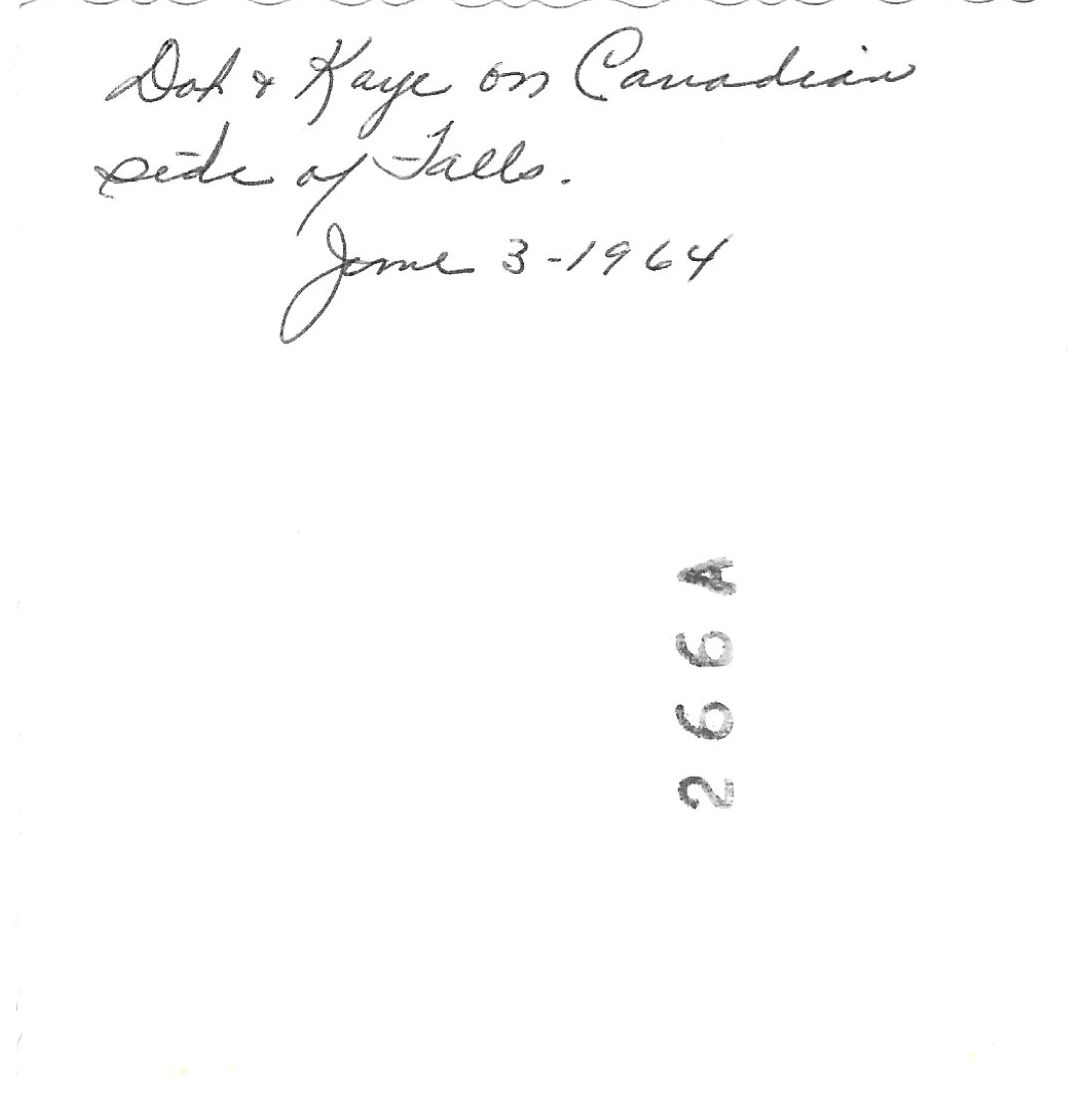 Dot & Kaye on Canadian
side of Falls.
June 3-1964
266A